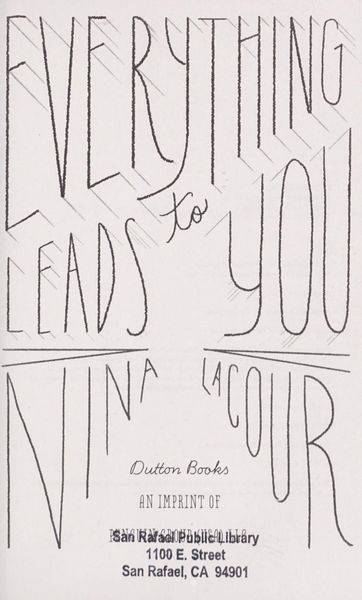 EVERYTHING
LEADS to YOU
NINA LACOUR
Dutton Books
AN IMPRINT OF
PENGUIN GROUP (USA) LLC
San Rafael Public Library
1100 E. Street
San Rafael, CA 94901